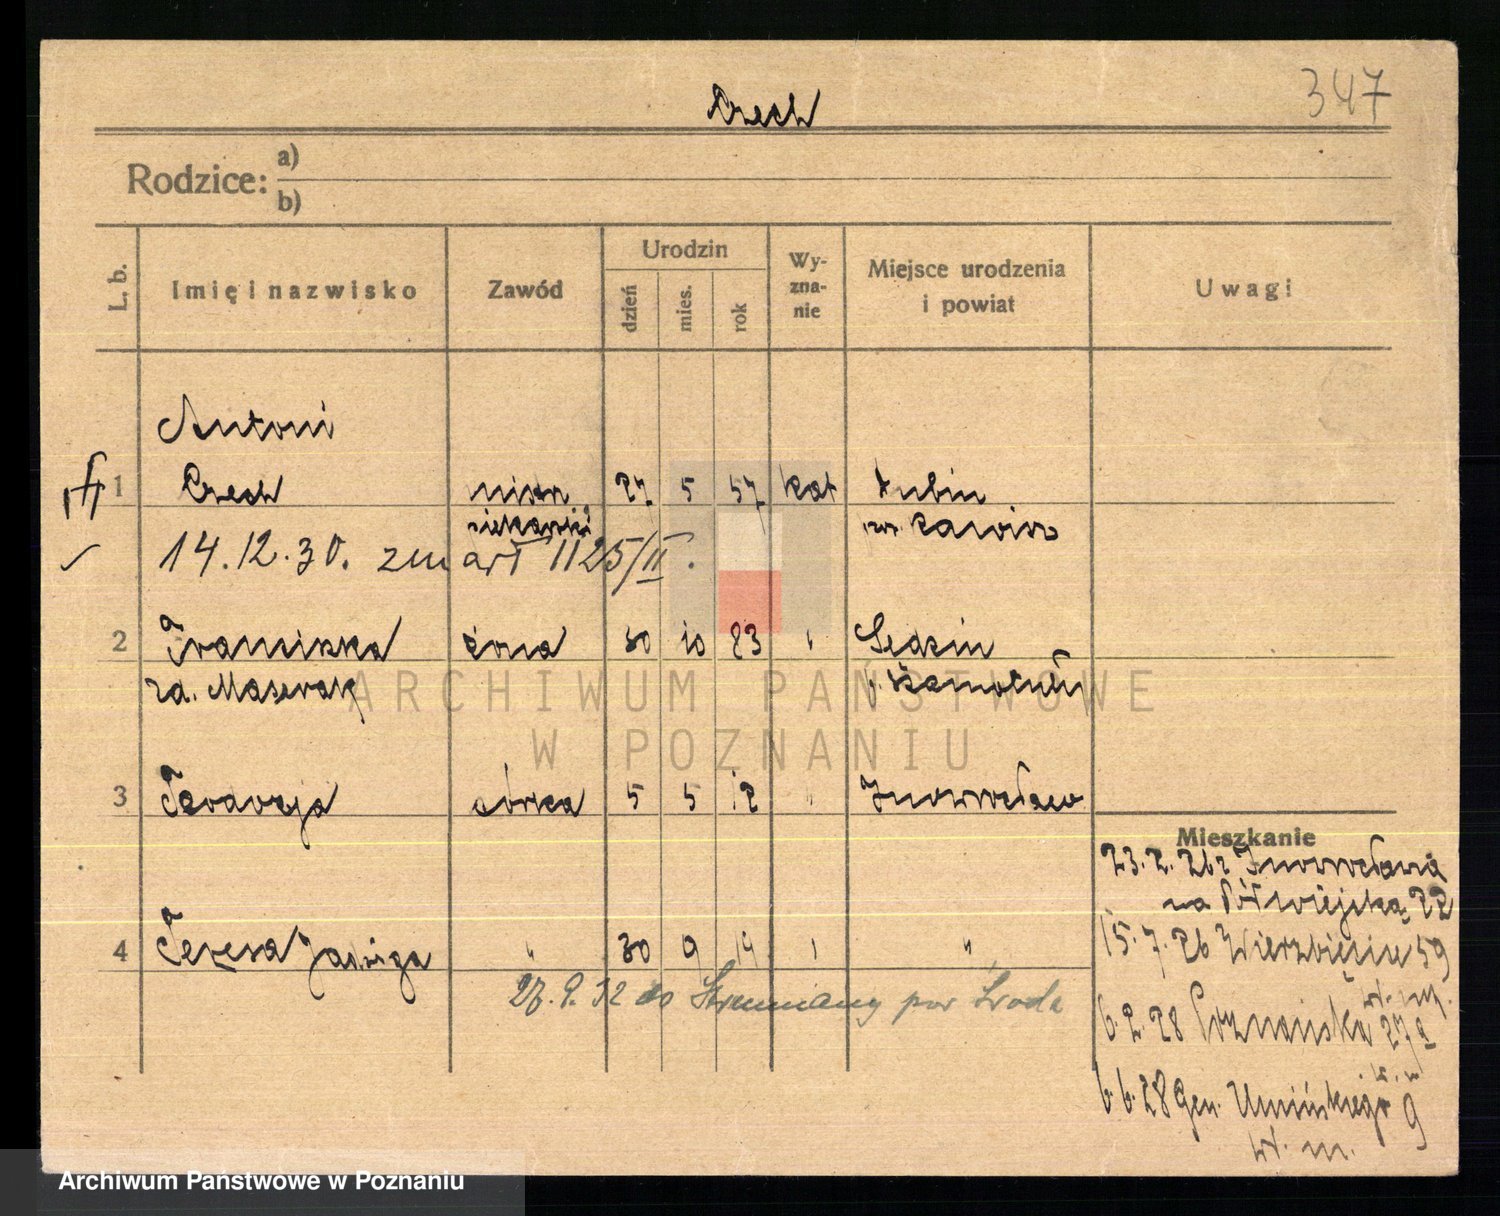 347
Czech
Rodzice: a)
b)
L. b. Imię i nazwisko Zawód Urodzin dzień mies. rok Wy-zna-nie Miejsce urodzenia i powiat Uwagi
Antoni
1 Czech 27 5 57 kat Lubin
14.12.30. zm art 1125/II.
2 Franciszka żona 30 10 83 " Sędzin
p. Szamotuły
3 córka 5 5 12 " Inowrocław
Mieszkanie
23.2.26 z Inowrocławia
na Półwiejską 22
4 Teresa Jadwiga " 30 9 14 " "
15.7.26 Wierzbięcice 59
27.9.32 do pow Środa
6.2.28 Poznańska 27a
6.6.28 Gen. Umińskiego 9
ARCHIWUM PAŃSTWOWE
W POZNANIU
Archiwum Państwowe w Poznaniu